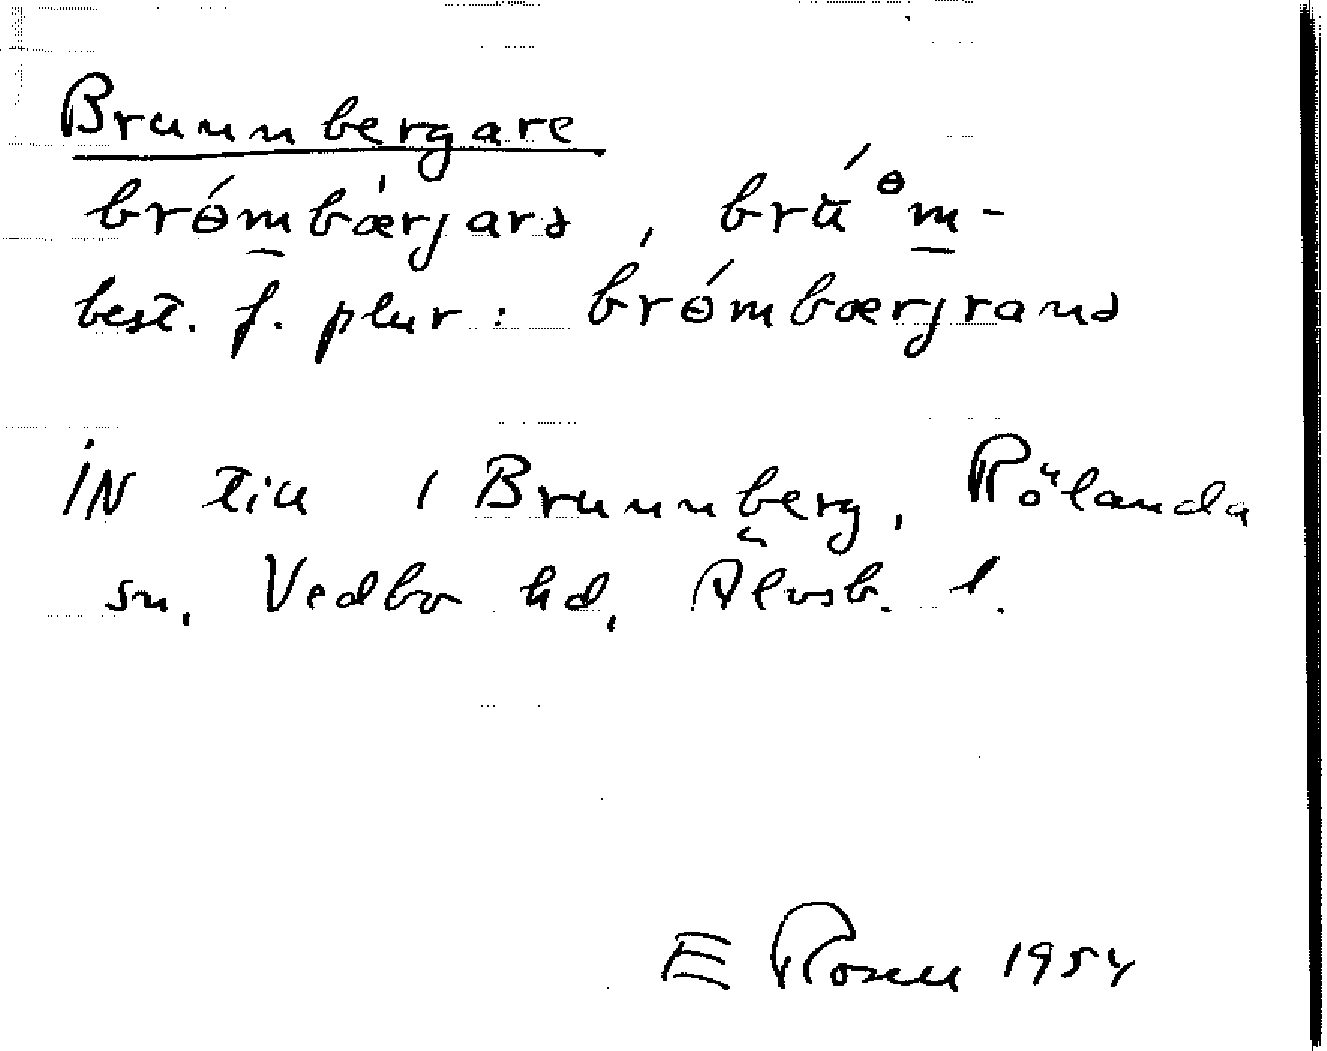 Brunnbergare
brɵ́m̲bǽrjarə, brʉ́ᶿm̲-
best. f. plur: brɵ́mbærjranə
iN till 1 Brunnberg, Rölanda
sn, Vedbo hd, Älvsb. l.
E Rosell 1954